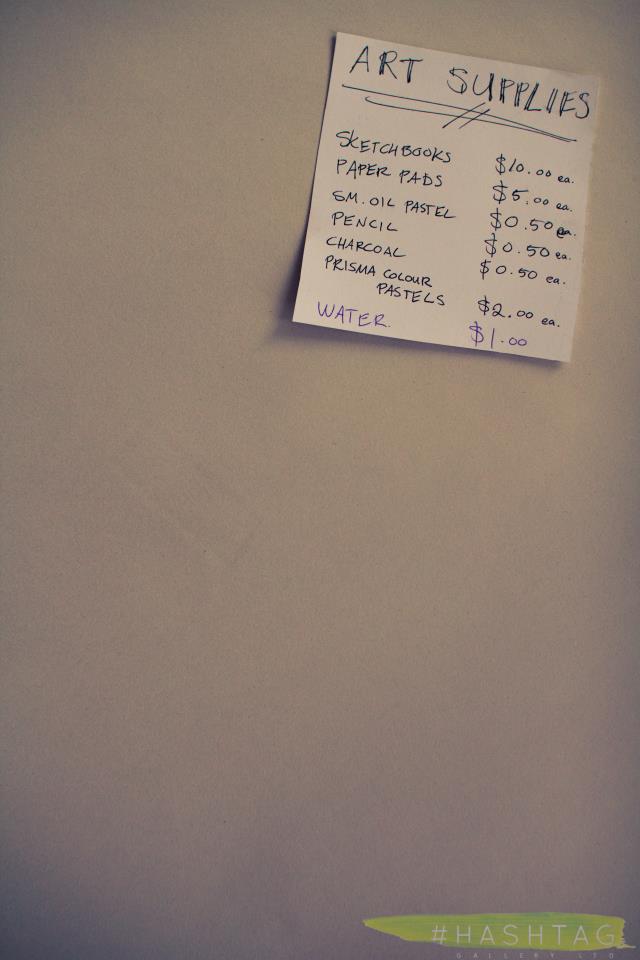 ART SUPPLIES
SKETCHBOOKS $10.00 ea.
PAPER PADS $5.00 ea.
SM. OIL PASTEL $0.50 ea.
PENCIL $0.50 ea.
CHARCOAL $0.50 ea.
PRISMA COLOUR
PASTELS $2.00 ea.
WATER. $1.00
#HASHTAG
GALLERY LTD